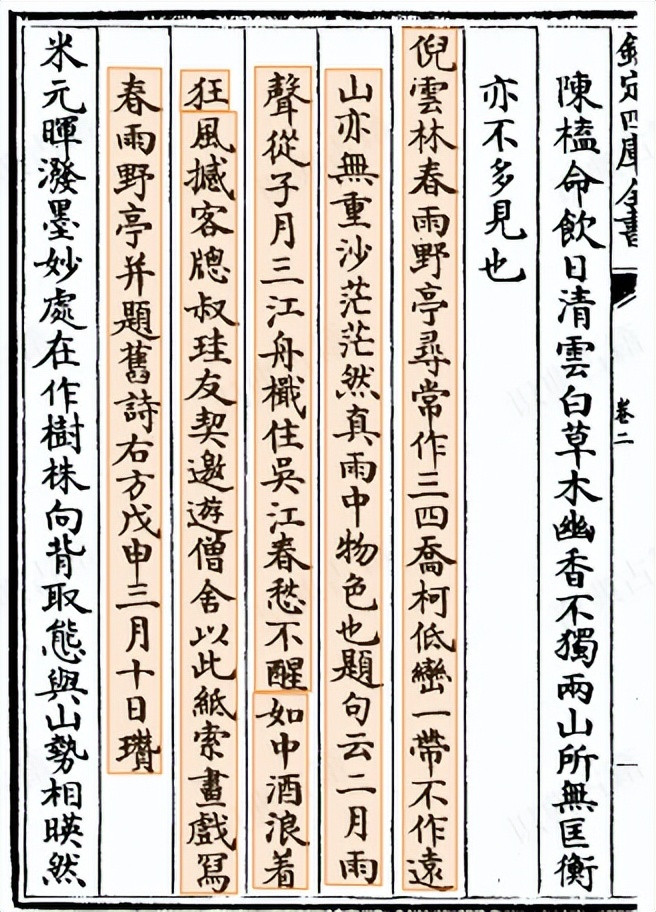 欽定四庫全書
卷二
陳榼命飲日清雲白草木幽香不獨兩山所無匡衡
亦不多見也
倪雲林春雨野亭尋常作三四喬柯低巒一帶不作遠
山亦無重沙茫茫然真雨中物色也題句云二月雨
聲從子月三江舟檝住吳江春愁不醒如中酒浪着
狂風撼客牕叔珪友契邀遊僧舍以此紙索畫戲冩
春雨野亭并題舊詩右方戊申三月十日瓚
米元暉潑墨妙處在作樹株向背取態與山勢相暎然